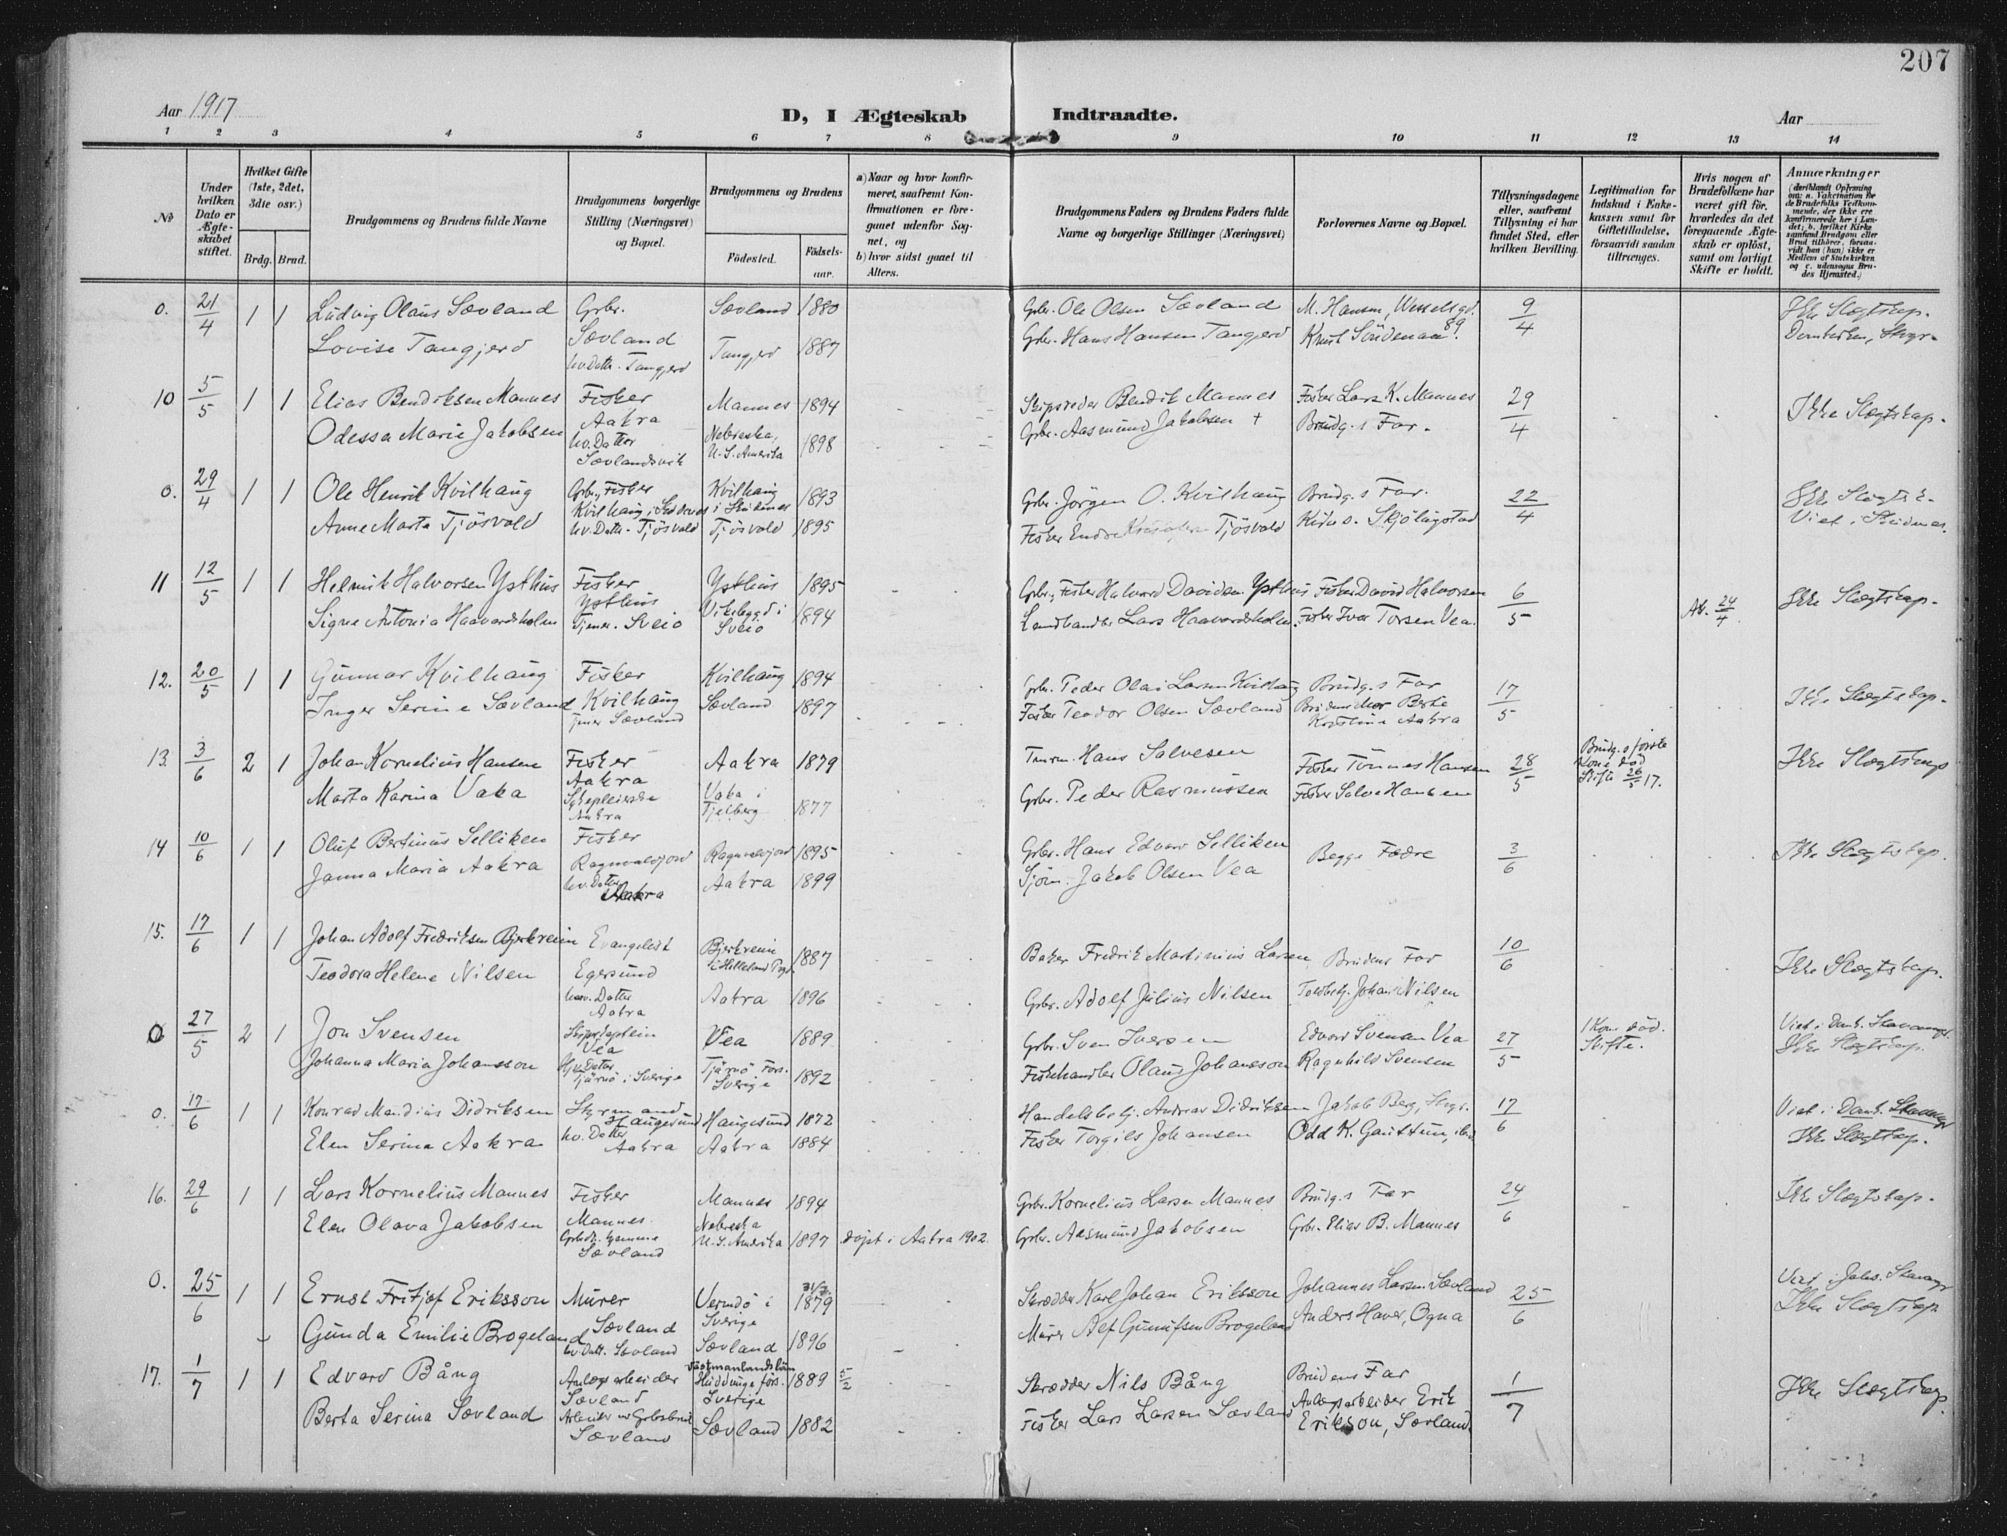 207
Aar 1917
D, I Ægteskab Indtraadte.
Aar
1 2 3 4 5 6 7 8 9 10 11 12 13 14
No
Under hvilken Dato er Ægteskabet stiftet.
Hvilket Gifte (1ste, 2det, 3die osv.)
Brdg. Brud.
Brudgommens og Brudens fulde Navne
Brudgommens borgerlige Stilling (Næringsvei) og Bopæl.
Brudgommens og Brudens
Fødested. Fødselsaar.
a) Naar og hvor konfirmeret, saafremt Konfirmationen er foregaaet udenfor Sognet, og
b) hvor sidst gaaet til Alters.
Brudgommens Faders og Brudens Faders fulde Navne og borgerlige Stillinger (Næringsvei)
Forlovernes Navne og Bopæl.
Tillysningsdagene eller, saafremt Tillysning ei har fundet Sted, efter hvilken Bevilling.
Legitimation for Indskud i Enkekassen samt for Giftetilladelse, forsaavidt saadan tiltrænges.
Hvis nogen af Brudefolkene har været gift før, hvorledes da det foregaaende Ægteskab er opløst, samt om lovligt Skifte er holdt.
Anmærkninger
0. 21/4 1 1 Ludvig Olaus Sævland Grbr. Sævland 1880 Grbr. Ole Olsen Sævland M. Hansen, Wesselsgt. 89 9/4 Ikke Slægtskap.
Lovise Tangjerd Sævland hv. Datter. Tangjerd Tangjerd 1887 Grbr. Hans Hansen Tangjerd Domkirken, Stvgr.
10 5/5 1 1 Elias Bendiksen Mannes Fisker Aakra Mannes 1894 Skipsreder Bendik Mannes Fisker Lars K. Mannes 29/4 Ikke Slægtskap.
Odessa Marie Jakobsen hv. Datter Sævlandsvik Nebraska, U.S. Amerika 1898 Grbr. Aasmund Jakobsen + Brudg.s Far.
0. 29/4 1 1 Ole Henrik Kvilhaug Grbr., Fisker Kvilhaug i Skudenes Kvilhaug i Skudenes 1893 Grbr. Jörgen O. Kvilhaug Brudg.s Far. 22/4 Ikke Slægtsk.
Anne Marta Tjösvold hv. Datt. Tjösvold Tjösvold 1895 Fisker Endre Tjösvold Viet i Skudenes.
11 12/5 1 1 Helmik Halvorsen Ysthus Fisker Ysthus Ysthus 1895 Grbr., Fisker Halvard Davidsen Ysthus Fisker David Halvorsen 6/5 24/4 Ikke Slægtskap.
Signe Antonia Haavardsholm Tjener. Sveio Vikebygd i Sveio 1894 Landhandler Lars Haavardsholm. Fisker Ivar Torsen Vea.
12. 20/5 1 1 Gunnar Kvilhaug Fisker Kvilhaug Kvilhaug 1894 Grbr. Peder Olai Larsen Kvilhaug Brudg.s Far 17/5 Ikke Slægtskap.
Inger Serine Sævland Tjener Sævland Sævland 1897 Fisker Teodor Olsen Sævland Brudens Mor Berte Kristine Aakra
13. 3/6 2 1 Johan Kornelius Hansen Fisker Aakra Aakra 1879 Hans Salvesen Fisker Tönnes Hansen 28/5 Brudg.s förste Kone död Skifte 26/5 17. Ikke Slægtskap
Marta Karina Vaka Sykepleierske Aakra Vaka i Tjelberg 1877 Grbr. Peder Rasmussen Fisker Salve Hansen
14 10/6 1 1 Oluf Bertinus Selliken Fisker Ragnvaldjord Ragnvaldjord 1895 Grbr. Hans Edvard Selliken Begge Fædre 3/6 Ikke Slægtskap.
Janna Maria Aakra hv. Datter Aakra Aakra 1899 Sjöm. Jakob Olsen Vea
15. 17/6 1 1 Johan Adolf Fredriksen Bjerkreim Evangelist Egersund Bjerkreim i Helleland Pgd. 1887 Baker Fredrik Martinius Larsen Brudens Far 10/6 Ikke Slægtskap.
Teodora Helene Nilsen hv. Datter Aakra Aakra 1896 Grbr. Adolf Julius Nilsen Toldbetj. Johan Nilsen
0 27/5 2 1 Jon Svensen Skipskaptein Vea Vea 1889 Grbr. Sven Iversen Edvard Svensen Vea 27/5 1 Kone död. Skifte. Viet i Domk. Stavanger
Johanna Maria Johansson Hj. Datter Tjärnö i Sverige Tjärnö Förs. Sverige 1892 Fiskehandler Olaus Johansson Ragnhild Svensen Ikke Slægtskap.
0. 17/6 1 1 Konrad Mandius Didriksen Styrmand Haugesund Haugesund 1872 Handelsbetj. Andreas Didriksen Jakob Berg, Stvgr. 17/6 Viet i Domk. Stavanger
Elen Serina Aakra hv. Datter Aakra Aakra 1884 Fisker Torgils Johansen Odd K. Gauttun, ibid Ikke Slægtskap.
16. 29/6 1 1 Lars Kornelius Mannes Fisker Mannes Mannes 1894 Grbr. Kornelius Larsen Mannes Brudg.s Far 24/6 Ikke Slægtskap.
Elen Olava Jakobsen Hjemme Sævland Nebraska U.S. Amerika 1897 döpt i Aakra 1902. Grbr. Aasmund Jakobsen Grbr. Elias B. Mannes
0. 25/6 1 1 Ernst Fritjof Eriksson Murer Sævland Vermdö i Sverige 31/3 1879 Skrædder Karl Johan Eriksson Johannes Larsen Sævland 25/6 Viet i Joh. Stavanger
Gunda Emilie Brogeland hv. Datt. Sævland Sævland 1896 Murer Alf Gunulfsen Brogeland Anders Haver, Ogna Ikke Slægtskap
17. 1/7 1 1 Edvard Bång Anlægsarbeider Sævland Västmanlandslän Huddunge förs. Sverige 1889 5/2 Skrædder Nils Bång Brudens Far 1/7 Ikke Slægtskap.
Berta Serina Sævland Sævland Sævland 1882 Fisker Lars Larsen Sævland Anlægsarbeider Erik Erikson, Sævland.